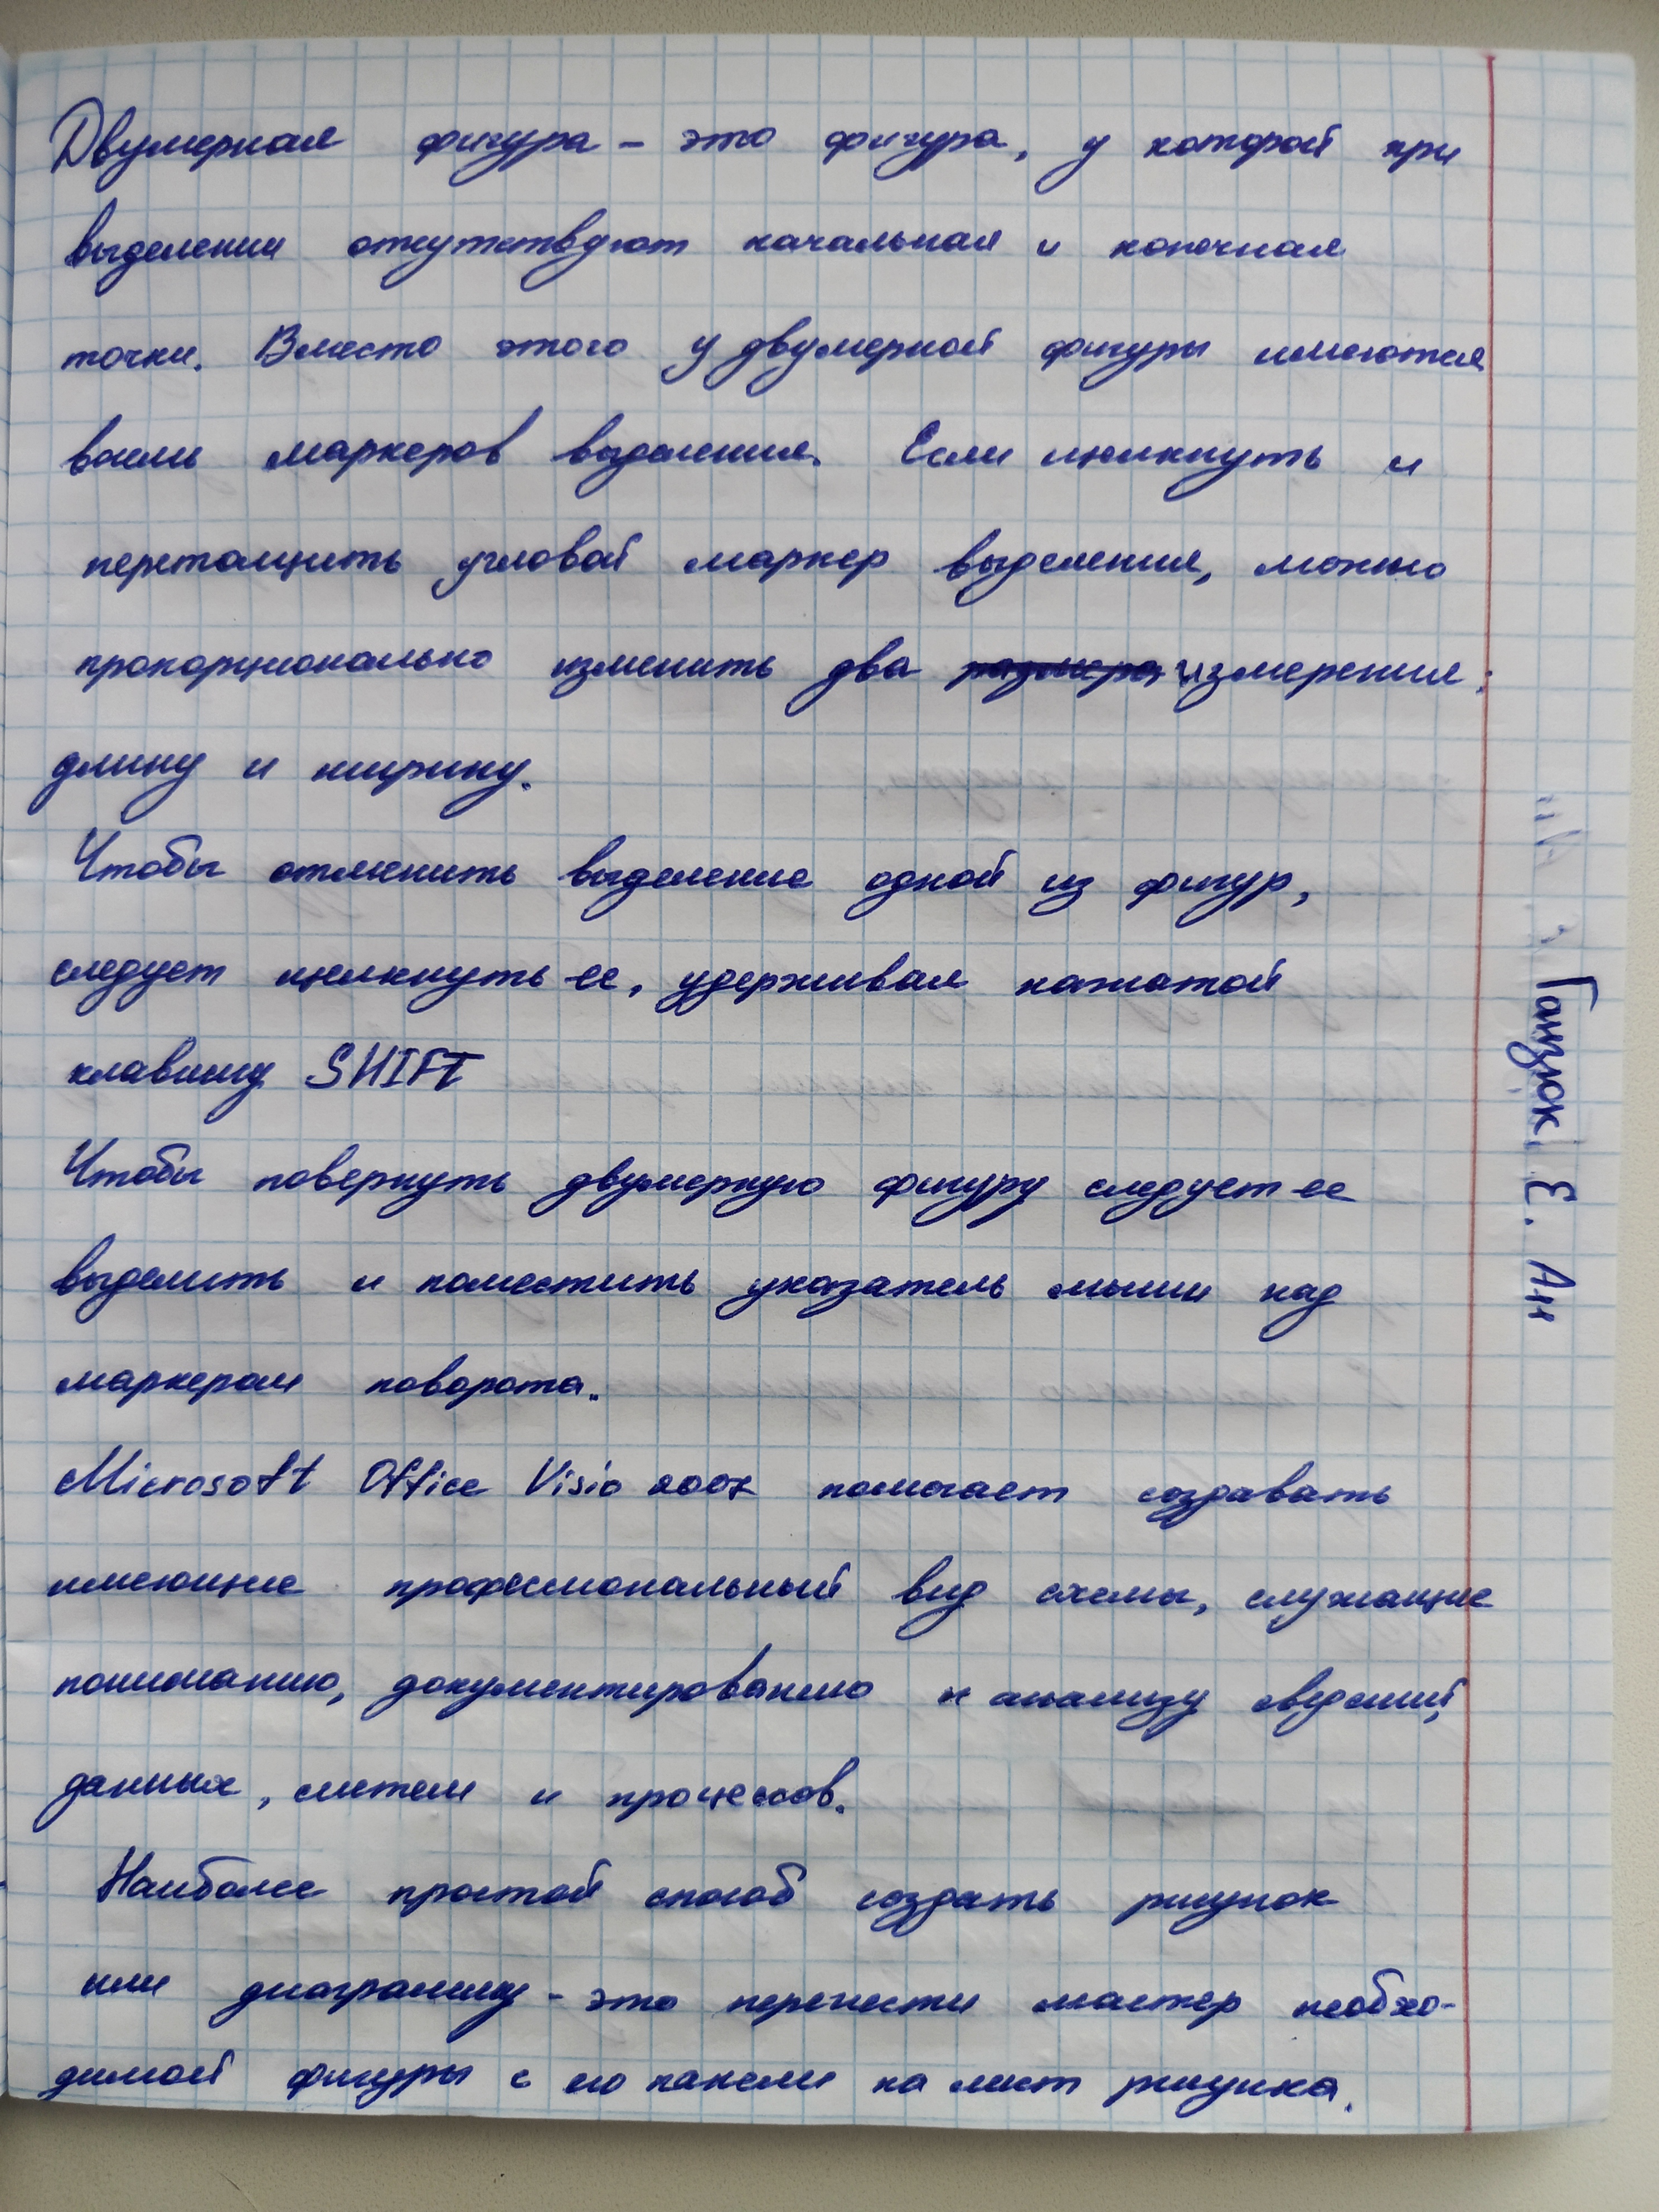 Двумерная фигура - это фигура, у которой при
выделении отсутствуют начальная и конечная
точки. Вместо этого у двумерной фигуры имеются
восемь маркеров выделения. Если щелкнуть и
перетащить угловой маркер выделения, можно
пропорционально изменить два размера измерения:
длину и ширину.
Чтобы отменить выделение одной из фигур,
следует щелкнуть ее, удерживая нажатой
клавишу SHIFT
Чтобы повернуть двумерную фигуру следует ее
выделить и поместить указатель мыши над
маркером поворота.
Microsoft Office Visio 2007 помогает создавать
имеющие профессиональный вид схемы, служащие
пониманию, документированию и анализу сведений,
данных, систем и процессов.
Наиболее простой способ создать рисунок
или диаграмму - это перенести мастер необхо-
димой фигуры с его панели на лист рисунка.
Ганзюк Е. Ан